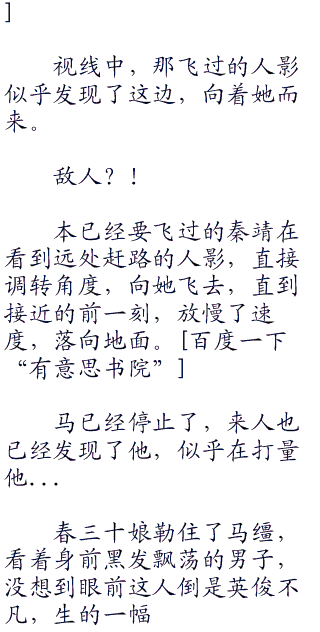 ]
视线中，那飞过的人影
似乎发现了这边，向着她而
来。
敌人？！
本已经要飞过的秦靖在
看到远处赶路的人影，直接
调转角度，向她飞去，直到
接近的前一刻，放慢了速
度，落向地面。[百度一下
“有意思书院”]
马已经停止了，来人也
已经发现了他，似乎在打量
他...
春三十娘勒住了马缰，
看着身前黑发飘荡的男子，
没想到眼前这人倒是英俊不
凡，生的一幅